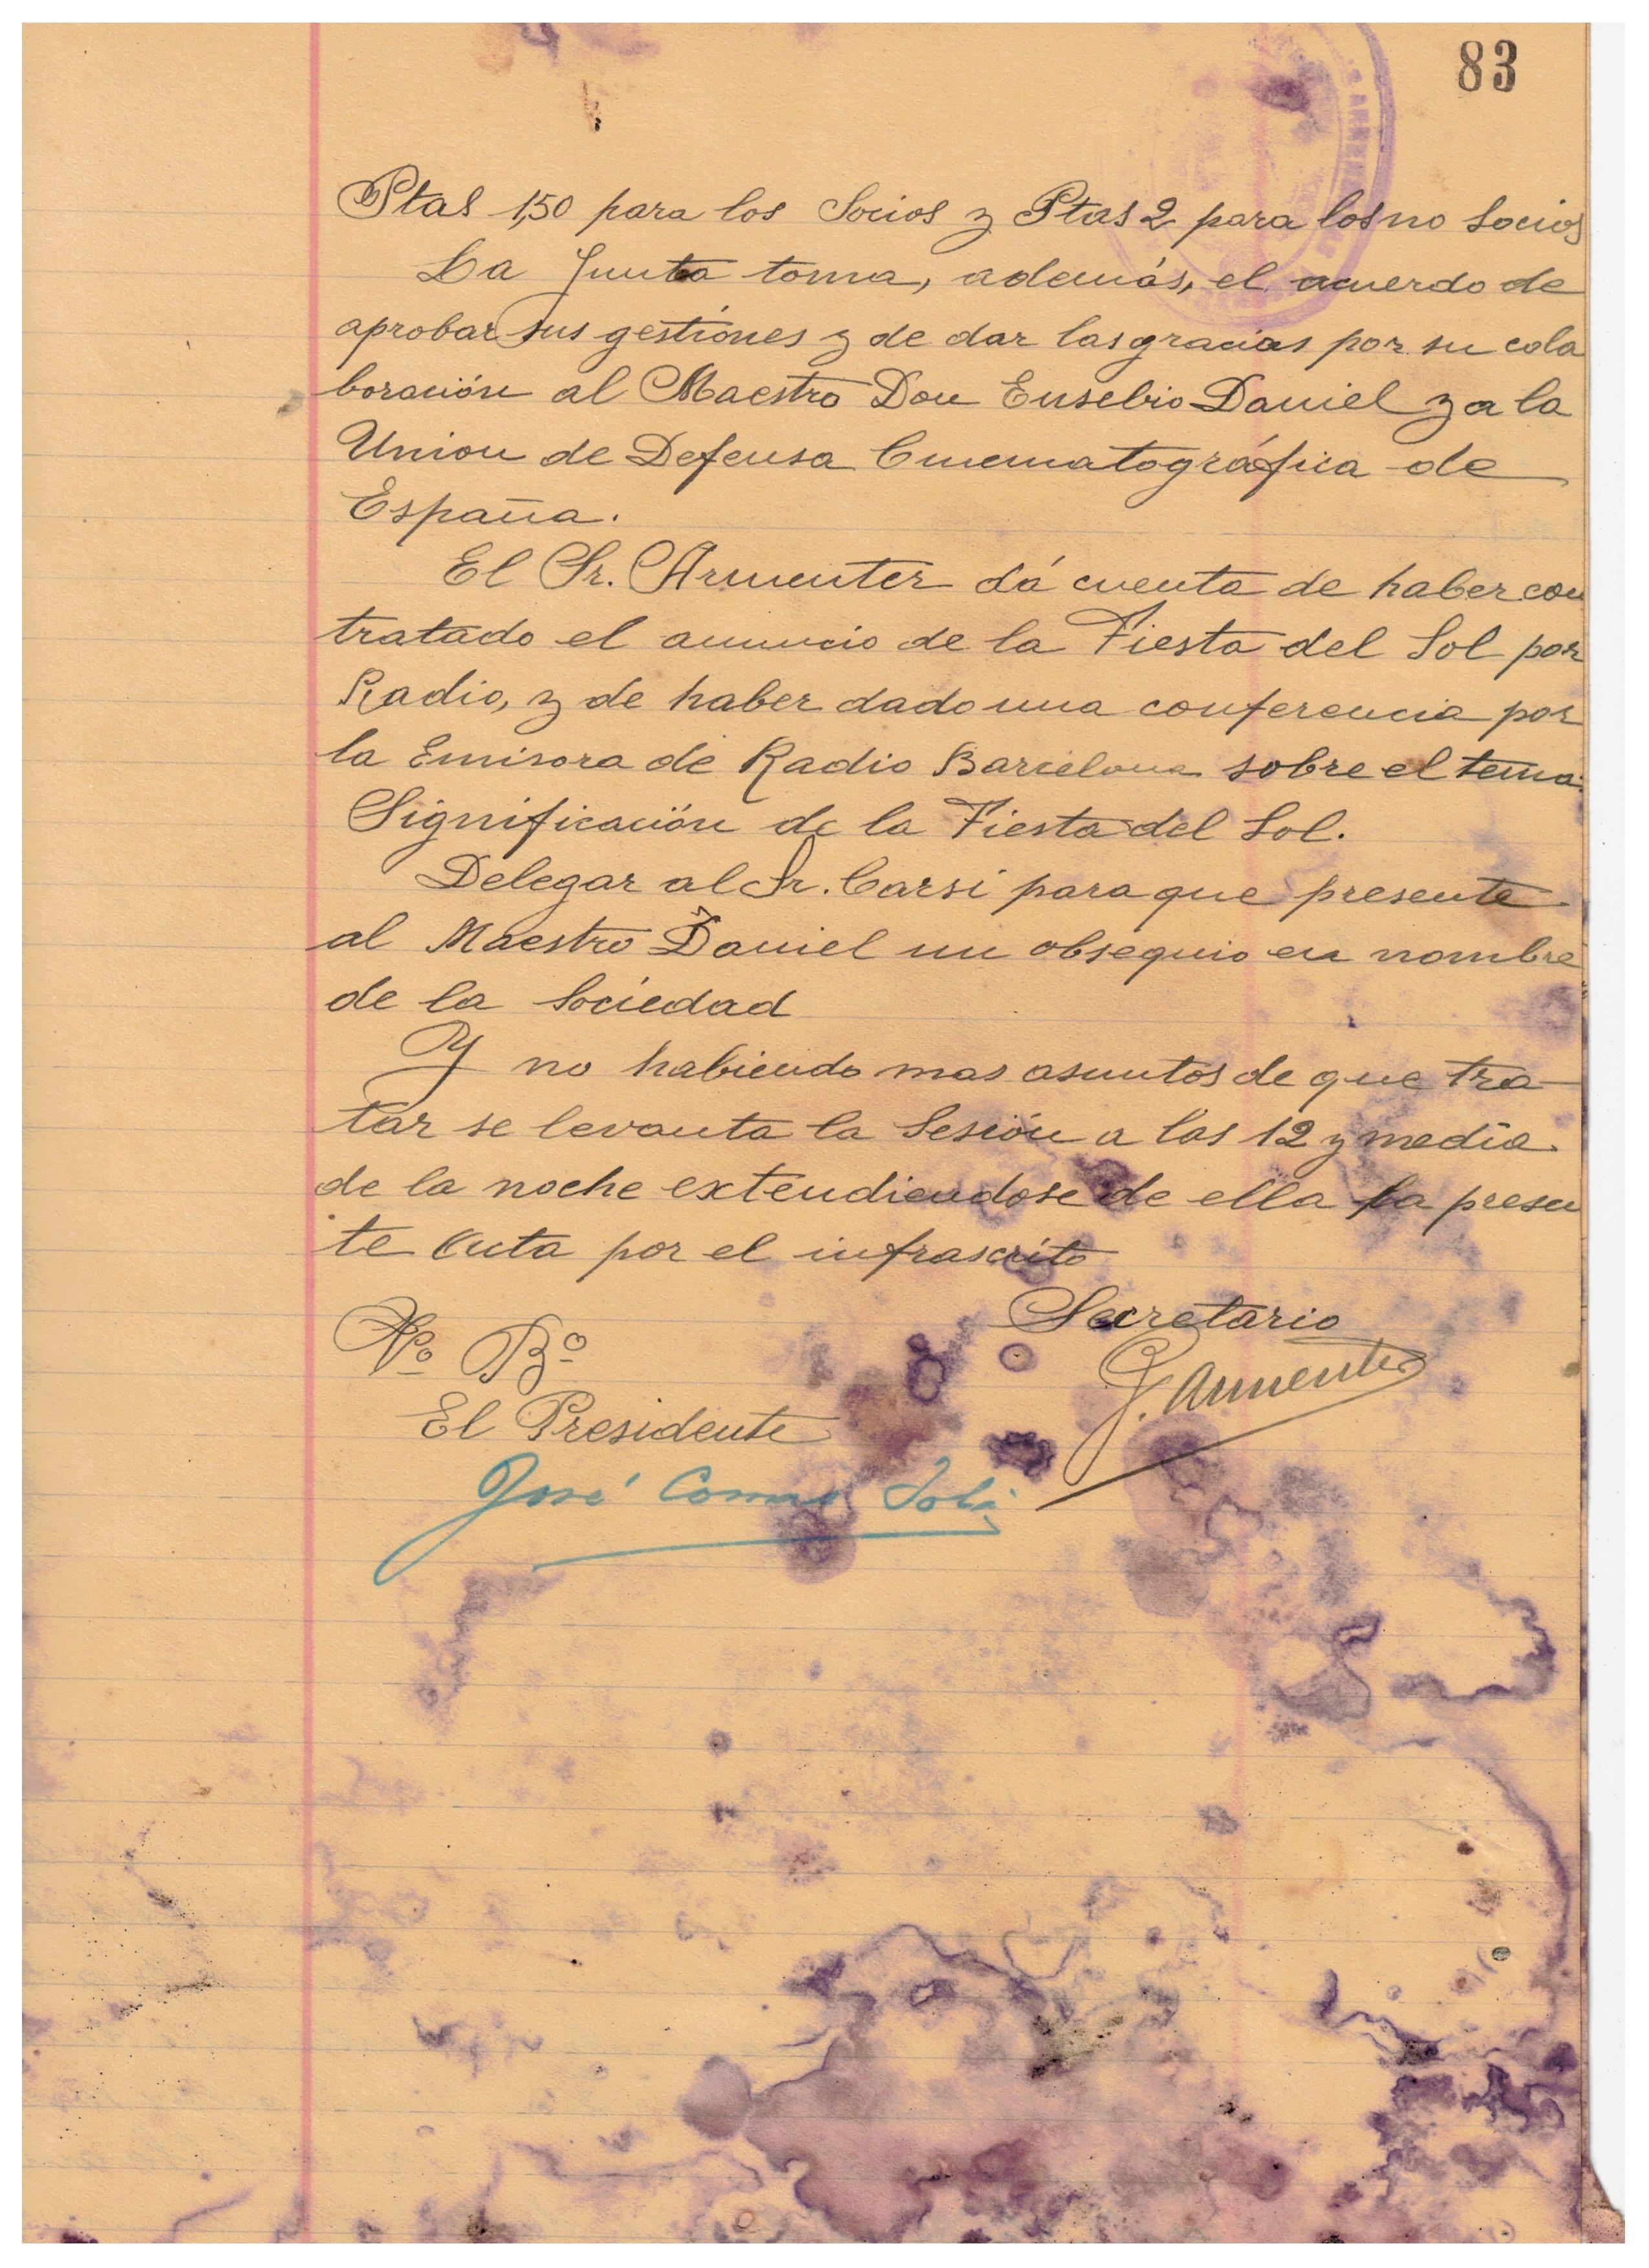 83
Ptas 1,50 para los Socios y Ptas 2 para los no Socios
La Junta toma, además, el acuerdo de
aprobar sus gestiones y de dar las gracias por su cola
boración al Maestro Don Eusebio Daniel y a la
Union de Defensa Cinematográfica de
España.
El Sr. Armenter dá cuenta de haber con
tratado el anuncio de la Fiesta del Sol por
Radio, y de haber dado una conferencia por
la Emisora de Radio Barcelona sobre el tema:
Significación de la Fiesta del Sol.
Delegar al Sr. Carsí para que presente
al Maestro Daniel un obsequio en nombre
de la Sociedad
Y no habiendo mas asuntos de que tra-
tar se levanta la Sesión a las 12 y media
de la noche extendiendose de ella la presen
te Acta por el infrascrito
Secretario
Vº Bº
J. Armenter
El Presidente
José Comas Solá